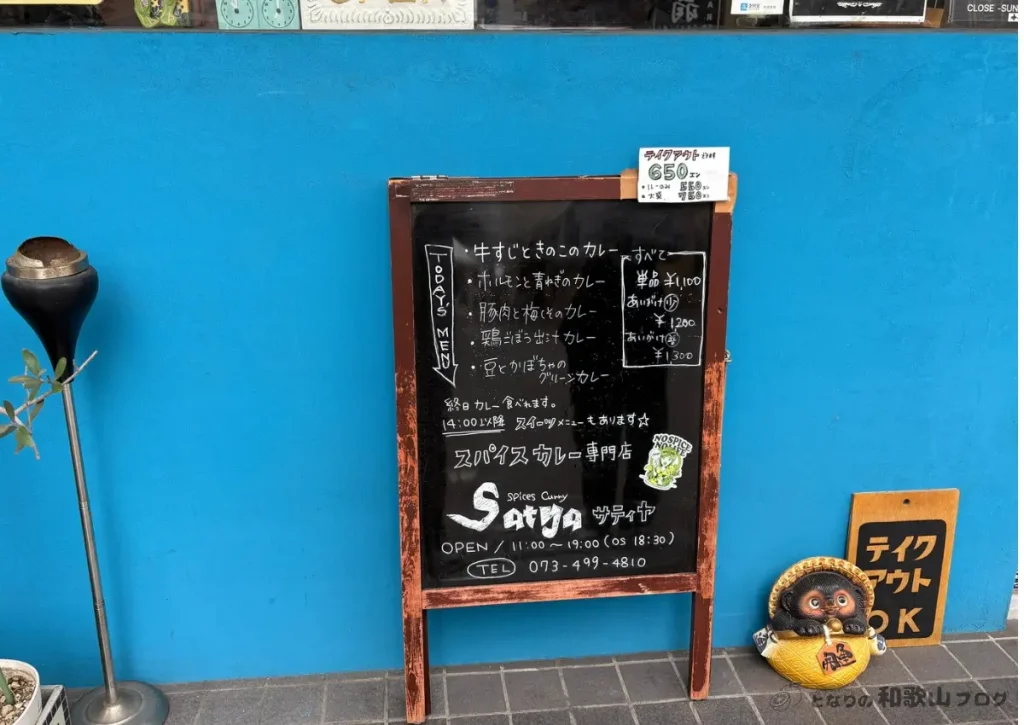 CLOSE -SUN
テイクアウト
650エン
550エン
大盛 750エン
TODAY'S MENU
・牛すじときのこのカレー
・ホルモンと青ねぎのカレー
・豚肉と梅しそのカレー
・鶏ごぼう出汁カレー
・豆とかぼちゃの
グリーンカレー
すべて
単品 ¥1,100
あいがけ小
¥1200
あいがけ
¥1300
終日カレー食べれます。
14:00以降 スイーツメニューもあります☆
スパイスカレー専門店
NO SPICE
NO LIFE
Spices Curry
Satya サティヤ
OPEN / 11:00~19:00(OS 18:30)
TEL 073-499-4810
テイク
アウト
OK
となりの和歌山ブログ